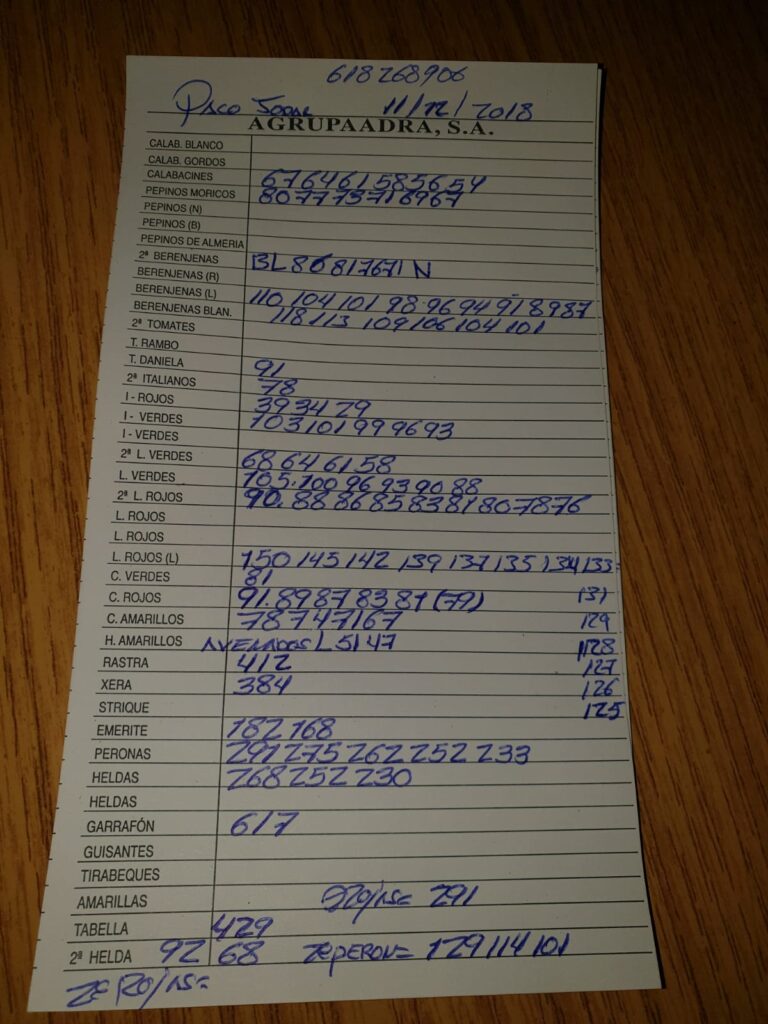 618268906
Paco 11/12/2018
AGRUPAADRA, S.A.
CALAB. BLANCO
CALAB. GORDOS
CALABACINES 67 64 61 58 56 54
PEPINOS MORICOS 80 77 73 71 69 67
PEPINOS (N)
PEPINOS (B)
PEPINOS DE ALMERIA
2ª BERENJENAS BL 86 81 76 71 N
BERENJENAS (R)
BERENJENAS (L) 110 104 101 98 96 94 91 89 87
BERENJENAS BLAN. 118 113 109 106 104 101
2ª TOMATES
T. RAMBO
T. DANIELA 91
2ª ITALIANOS 78
I - ROJOS 39 34 29
I - VERDES 103 101 99 96 93
I - VERDES
2ª L. VERDES 68 64 61 58
L. VERDES 105. 100 96 93 90 88
2ª L. ROJOS 90. 88 86 85 83 81 80 78 76
L. ROJOS
L. ROJOS
L. ROJOS (L) 150 145 142 139 137 135 134 133=
C. VERDES 81
C. ROJOS 91. 89 87 83 81 (79) 131
C. AMARILLOS 78 74 71 67 129
H. AMARILLOS L 51 47 128
RASTRA 412 127
XERA 384 126
STRIQUE 125
EMERITE 182 168
PERONAS 291 275 262 252 233
HELDAS 268 252 230
HELDAS
GARRAFÓN 617
GUISANTES
TIRABEQUES
AMARILLAS 291
TABELLA 429
2ª HELDA 92 68 129 114 101